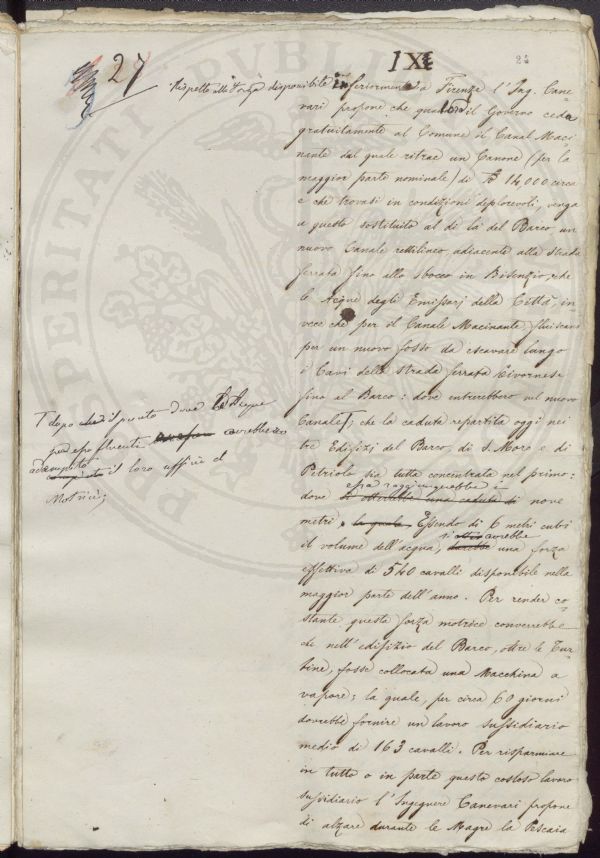 27
IX
Rispetto alla Forza disponibile inferiormente a Firenze l'Ing. Cane-
vari propone che qualora il Governo ceda
gratuitamente al Comune il Canal Maci-
nante dal quale ritrae un Canone (per la
maggior parte nominale) di 14,000 circa
e che trovasi in condizioni deplorevoli, venga
a questo sostituito al di là del Barco un
nuovo Canale rettilineo adiacente alla strada
ferrata fino allo sbocco in Bisenzio, che
le Acque degli Emissarj della Città, in-
vece che per il Canale Macinante, fluiscano
per un nuovo fosso da escavare lungo
i Cavi della strada ferrata Livornese
fino al Barco: dove entrerebbero nel nuovo
Canale; che la caduta repartita oggi nei
tre Edifizj del Barco, di S. Moro e di
Petriolo sia tutta concentrata nel primo:
dove essa raggiungerebbe i nove
metri. Essendo di 6 metri cubi
il volume dell'acqua, si avrebbe una forza
effettiva di 540 cavalli disponibile nella
maggior parte dell'anno. Per render co-
stante questa forza motrice converrebbe
che nell'edifizio del Barco, oltre le Tur-
bine, fosse collocata una Macchina a
vapore; la quale, per circa 60 giorni
dovrebbe fornire un lavoro sussidiario
medio di 163 cavalli. Per risparmiare
in tutto o in parte questo costoso lavoro
sussidiario l'Ingegnere Canevari propone
di alzare durante le Magre la Pescaia
T dopo il punto dove le Acque
avrebbero
adempito il loro ufficio di
Motrici;